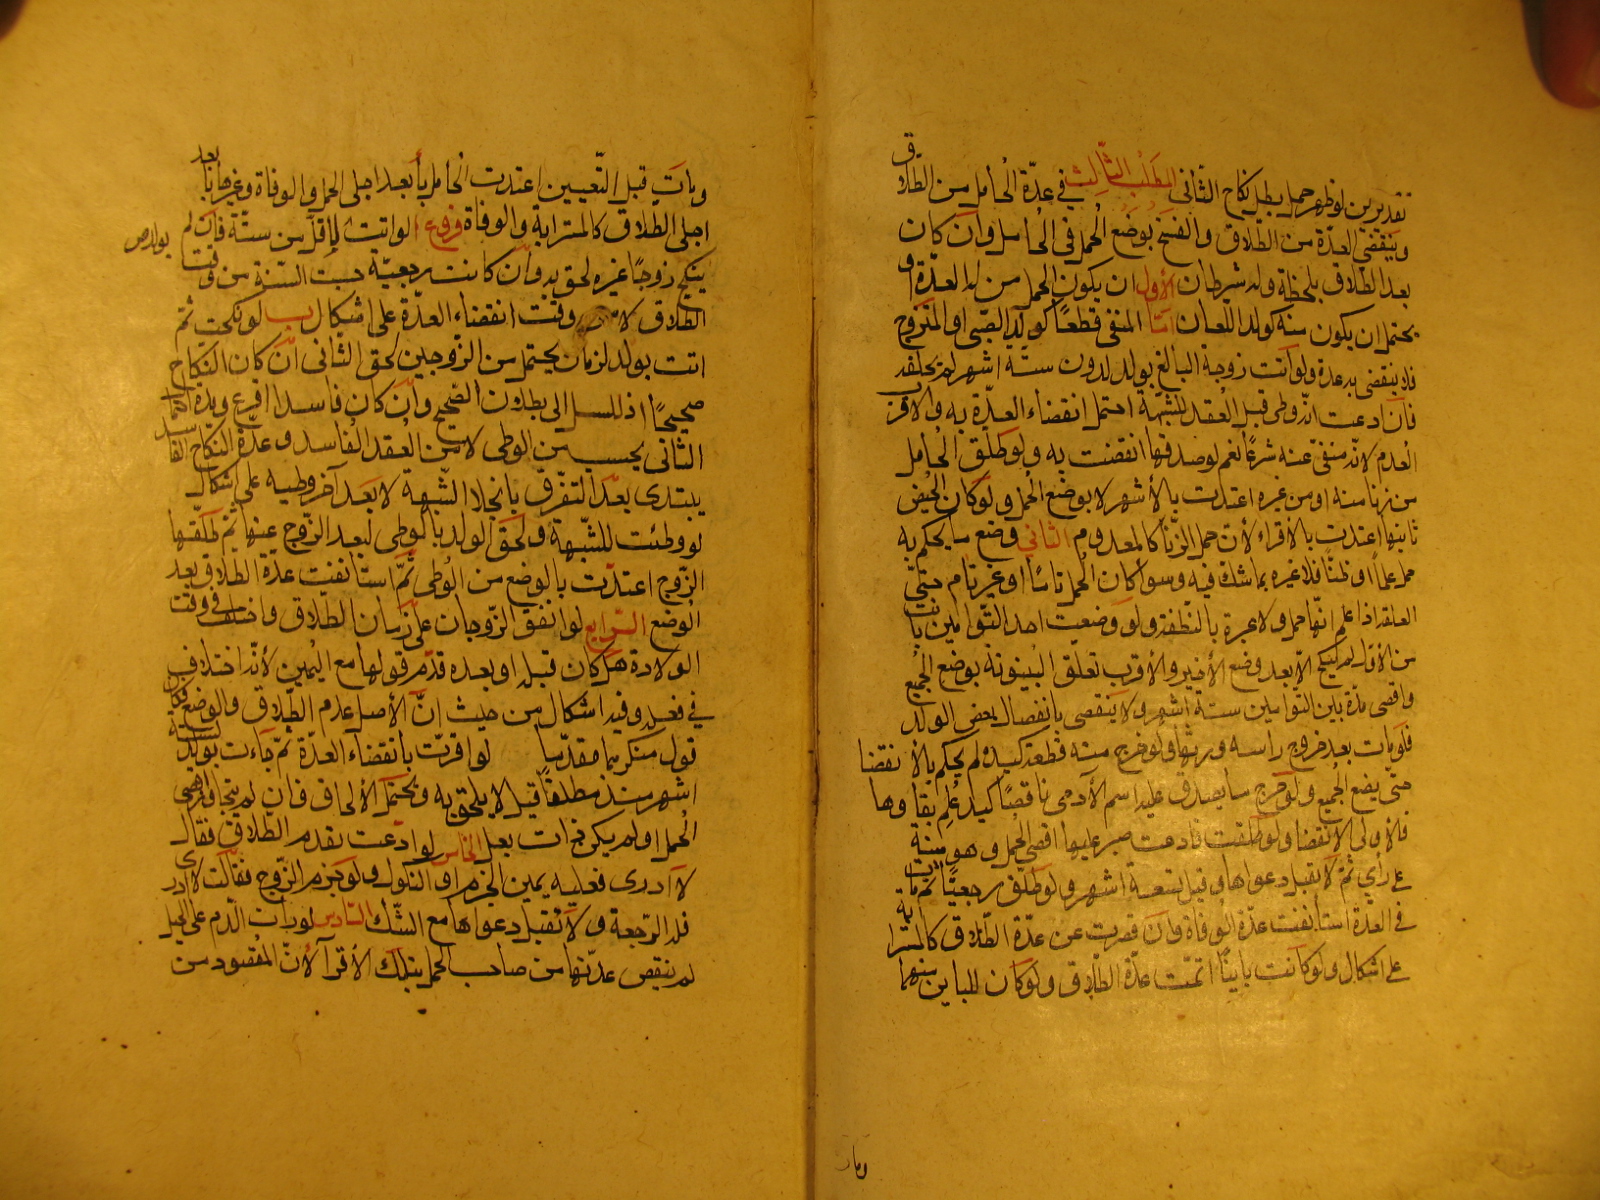 تقديرين لو ظهر حمل بطل نكاح الثاني المطلب الثالث في عدة الحامل من الطلاق
وينقضي العدة من الطلاق والفسخ بوضع الحمل في الحامل وان كان
بعد الطلاق بلحظة وله شرطان الأول ان يكون الحمل من له العدة او
يحتمل ان يكون منه كولد اللعان اما المنفي قطعًا كولد الصبي او المتزوج
فلا ينقضي به عدة ولو اتت زوجة البالغ بولد لدون ستة اشهر لم يلحقه
فان ادعت انه وطي قبل العقد للشبهة احتمل انقضاء العدة به والاقرب
العدم لانه منفي عنه شرعًا نعم لو صدقها انقضت به ولو طلق الحامل
من زنا منه او من غيره اعتدت بالأشهر لا بوضع الحمل ولو كان الحيض
ثانيها اعتدت بالاقراء لأن حمل الزنا كالمعدوم الثاني وضع ما يحكم به
حمل علماً او ظناً فلا عبرة بما شك فيه وسواء كان الحمل تامًا او غير تام حتى
العلقة اذا علم انها حمل ولا عبرة بالنطفة ولو وضعت احد التوامين بانت
من الأول لم ينكح الا بعد وضع الأخير والأقرب تعلق البينونة بوضع الجميع
واقصى مدة بين التوامين ستة اشهر ولا ينقضي بانفصال بعض الولد
فلو مات بعد خروج راسه ورثها ولو خرج منه قطعة كيده لم يحكم بالانقضا
حتى يضع الجميع ولو خرج ما يصدق عليه اسم الآدمي ناقصًا كيد علم بقاوها
فالاولى الانقضا ولو طلقت فادعت صبر عليها اقصى الحمل وهو سنة
على رأي ثم لا يقبل دعواها وقيل تسعة اشهر ولو طلق رجعيًا ثم مات
في العدة استانفت عدة الوفاة وان قصرت عن عدة الطلاق كالمسترابة
على اشكال ولو كانت باينًا اتمت عدة الطلاق ولو كان للباين بينهما
ومات
ومات قبل التعيين اعتدت الحامل بأبعد اجلي الحمل والوفاة وغيرها بابعد
اجلي الطلاق كالمسترابة والوفاة فروع لو اتت لأقل من ستة فان لم
بولد ص
ينكح زوجًا غيره لحق به وان كانت رجعية حسبت السنة من وقت
الطلاق لا من وقت انقضاء العدة على اشكال ب لو نكحت ثم
اتت بولد لزمان يحتمل من الزوجين لحق الثاني ان كان النكاح
صحيحًا اذ لا سبيل الى بطلان الصحيح وان كان فاسدا اقرع ومدة احتمال
الثاني يحسب من الوطي لا من العقد الفاسد وعدة النكاح الفاسد
يبتدي بعد التفرق بانجلاء الشبهة لا بعد آخر وطيه على اشكال
لو وطئت للشبهة ولحق الولد بالوطي لبعد الزوج عنها ثم طلقها
الزوج اعتدت بالوضع من الوطي ثم استانفت عدة الطلاق بعد
الوضع الرابع لو اتفق الزوجان على زمان الطلاق واختلف في وقت
الولادة هل كان قبله او بعده قدم قولها مع اليمين لأنه اختلاف
في فعله وفيه اشكال من حيث ان الأصل عدم الطلاق والوضع فكان
قول منكرهما مقدما لو اقرت بانقضاء العدة ثم جاءت بولد لستة
اشهر منذ مطلقًا قيل لا يلحق به ويحتمل الالحاق ان لم يتجاوز اقصى
الحمل اولم يكن ذات بعل الخامس لو ادعت تقدم الطلاق فقال
لا ادري فعليه يمين الجزم او النكول ولو جزم الزوج فقالت لا ادري
فله الرجعة ولا تقبل دعواها مع الشك السادس لو رات الدم على الحبل
لم ينقض عدتها من صاحب الحمل بتلك الأقرآء لأن المقصود من